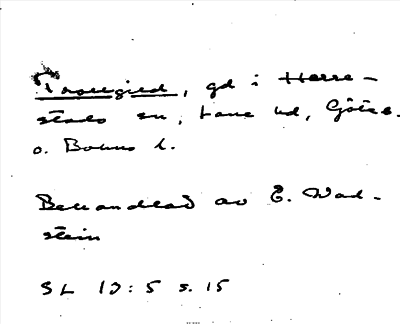 Trollgied, gd i Herre-
stads sn, Lane hd, Göteb.
o. Bohus l.
Behandlad av E. Wad-
stein
SL 17:5 s. 15